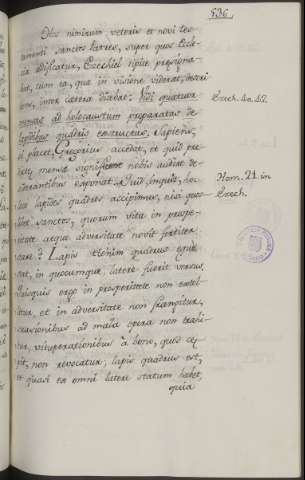 536.
Hos nimirum veteris et novi tes-
tamenti sanctos Patres, super quos Eccle-
sia ædificatur, Ezechiel ipse præsigna-
bat, cum ea, quæ in visione viderat,
inter cætera diceret: Vidi quatuor
mensas ad holocaustum præparatas de
lapidibus quadris extructas. Sapiens,
si placet, Gregorius accedat, et quid præ-
dictæ mensæ significent nobis audire de-
siderantibus exponat. Quid, inquit, hoc
loco lapides quadros accipimus, nisi quos-
libet sanctos, quorum vita in prospe-
ritate atque adversitate novit fortiter
stare? Lapis etenim quadrus equè
stat, in quocumque latere fuerit versus.
Quisquis ergo in prosperitate non extol-
litur, et in adversitate non frangitur,
suasionibus ad mala opera non trahi-
tur, vituperationibus à bono, quod cæ-
pit, non revocatur, lapis quadrus est,
et quasi ex omni latere statum habet,
quia
Ezech. 40. 42.
Hom. 21. in
Ezech.